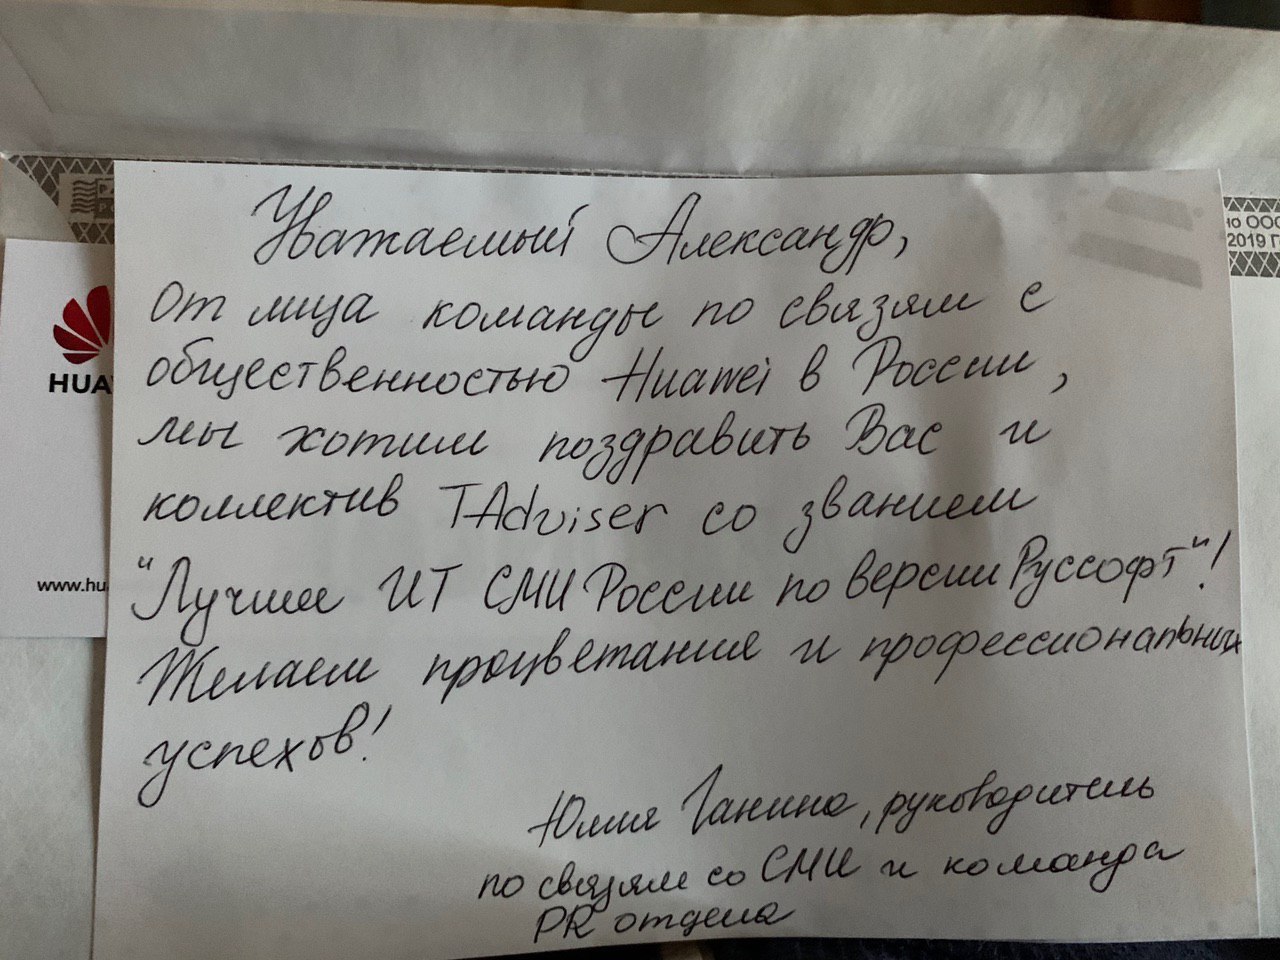 Уважаемый Александр,
от лица команды по связям с
общественностью Huawei в России,
мы хотим поздравить Вас и
коллектив TAdviser со званием
"Лучшее ИТ СМИ России по версии Руссофт"!
Желаем процветания и профессиональных
успехов!
Юлия Ганина, руководитель
по связям со СМИ и команда
PR отдела
HUA
www.hu
но ООО
2019 Г